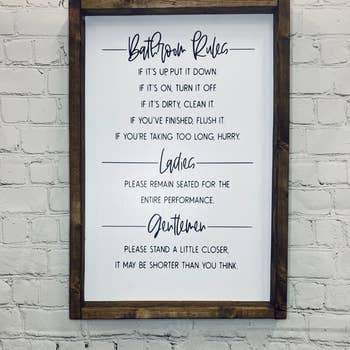 Bathroom Rules
IF IT'S UP, PUT IT DOWN.
IF IT'S ON, TURN IT OFF
IF IT'S DIRTY, CLEAN IT.
IF YOU'VE FINISHED, FLUSH IT.
IF YOU'RE TAKING TOO LONG, HURRY.
Ladies
PLEASE REMAIN SEATED FOR THE
ENTIRE PERFORMANCE.
Gentlemen
PLEASE STAND A LITTLE CLOSER,
IT MAY BE SHORTER THAN YOU THINK.